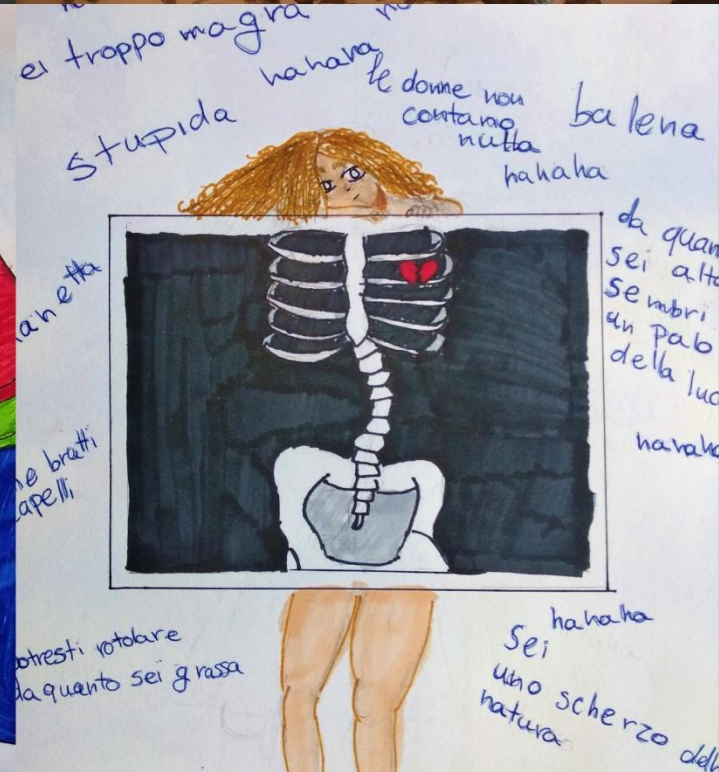 ei troppo magra
hahaha
le donne non
contano
nulla
hahaha
balena
stupida
da quan
sei alta
sembri
un palo
della luc
hahaha
anetta
he brutti
capelli
potresti rotolare
da quanto sei grassa
hahaha
Sei
uno scherzo dell
natura